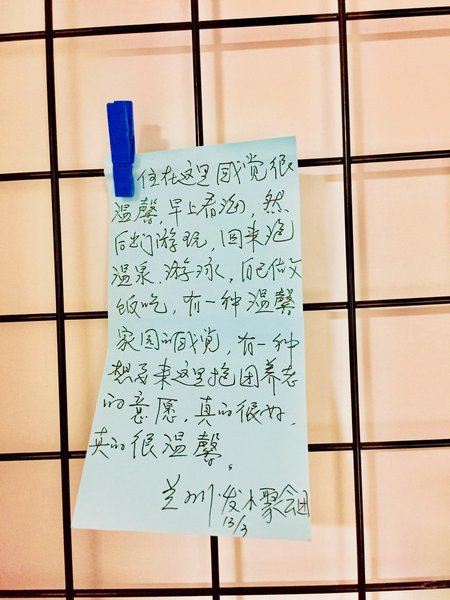 住在这里感觉很
温馨，早上看海，然
后出门游玩，回来泡
温泉．游泳，自己做
饭吃，有一种温馨
家园的感觉，有一种
想要来这里抱团养老
的意愿，真的很好，
真的很温馨。
兰州发小聚会团
13/3